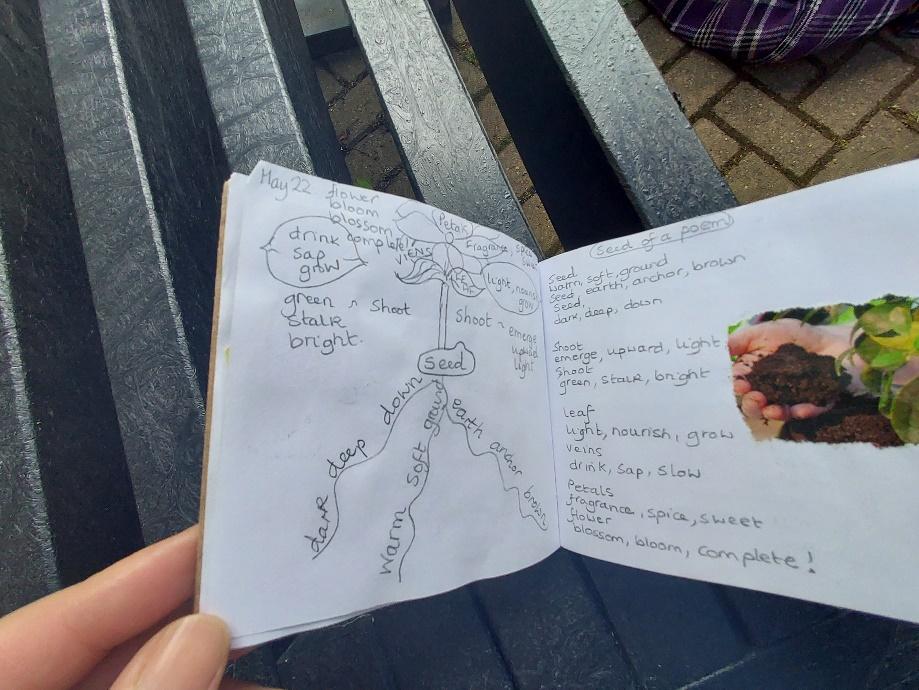 May 22
flower
bloom
blossom
complete!
drink
sap
grow
Petals
Fragrance, spice
VEINS
LEAF
light, nourish
grow
green ~ Shoot
Stalk
bright.
Shoot ~ emerge
upward
light
Seed
dark deep down
Warm soft ground
earth anchor brown
Seed of a poem
Seed
warm, soft, ground
Seed, earth, anchor, brown
Seed,
dark, deep, down
Shoot
emerge, upward, light
Shoot
green, stalk, bright
leaf
light, nourish, grow
veins
drink, sap, slow
Petals
fragrance, spice, sweet
flower
blossom, bloom, complete!